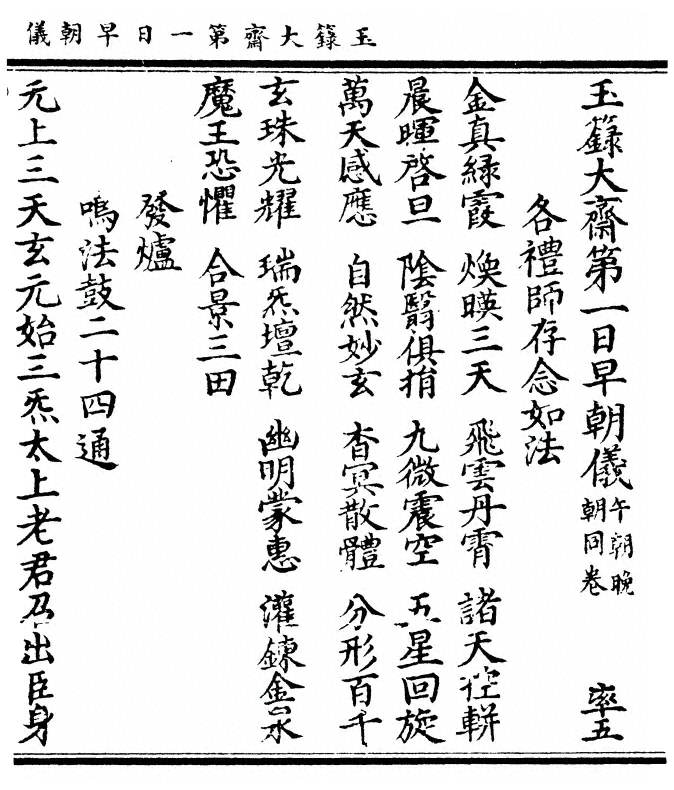 玉籙大齋第一日早朝儀
玉籙大齋第一日早朝儀 午朝晚朝同卷 率五
各禮師存念如法
金真綠霞 煥暎三天 飛雲丹霄 諸天控軿
晨暉啓旦 陰翳俱捎 九微震空 五星回旋
萬天感應 自然妙玄 杳冥散體 分形百千
玄珠光耀 瑞炁壇乾 幽明蒙惠 灌鍊金水
魔王恐懼 合景三田
發爐
鳴法鼓二十四通
元上三天玄元始三炁太上老君召出臣身